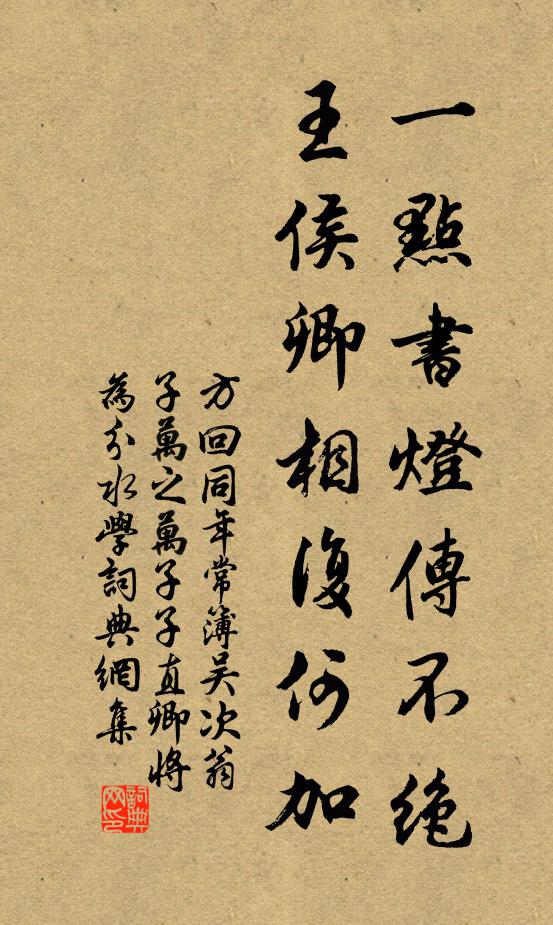 一點書燈傳不絕
王侯卿相復何加
方回同年常簿吳次翁
子萬之萬子子直卿將
為分水學詞典網集
詞典網印